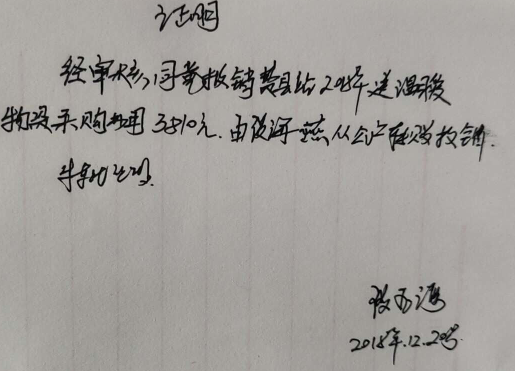 证明
经审核,同意报销费县站2018年送温暖
物资采购费用3810元.由段海燕从会产账报销.
特此证明.
2018年.12.20号